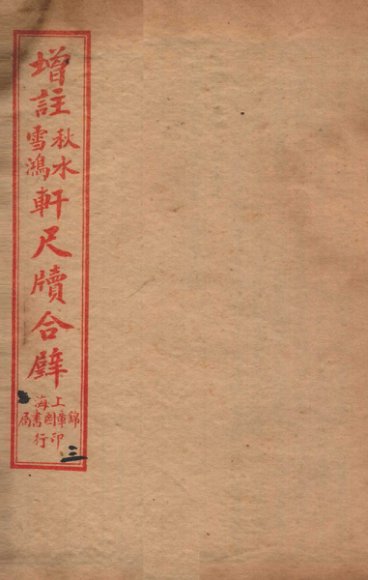 增註秋水雪鴻軒尺牘合璧
上海
錦章圖書局
印行
三